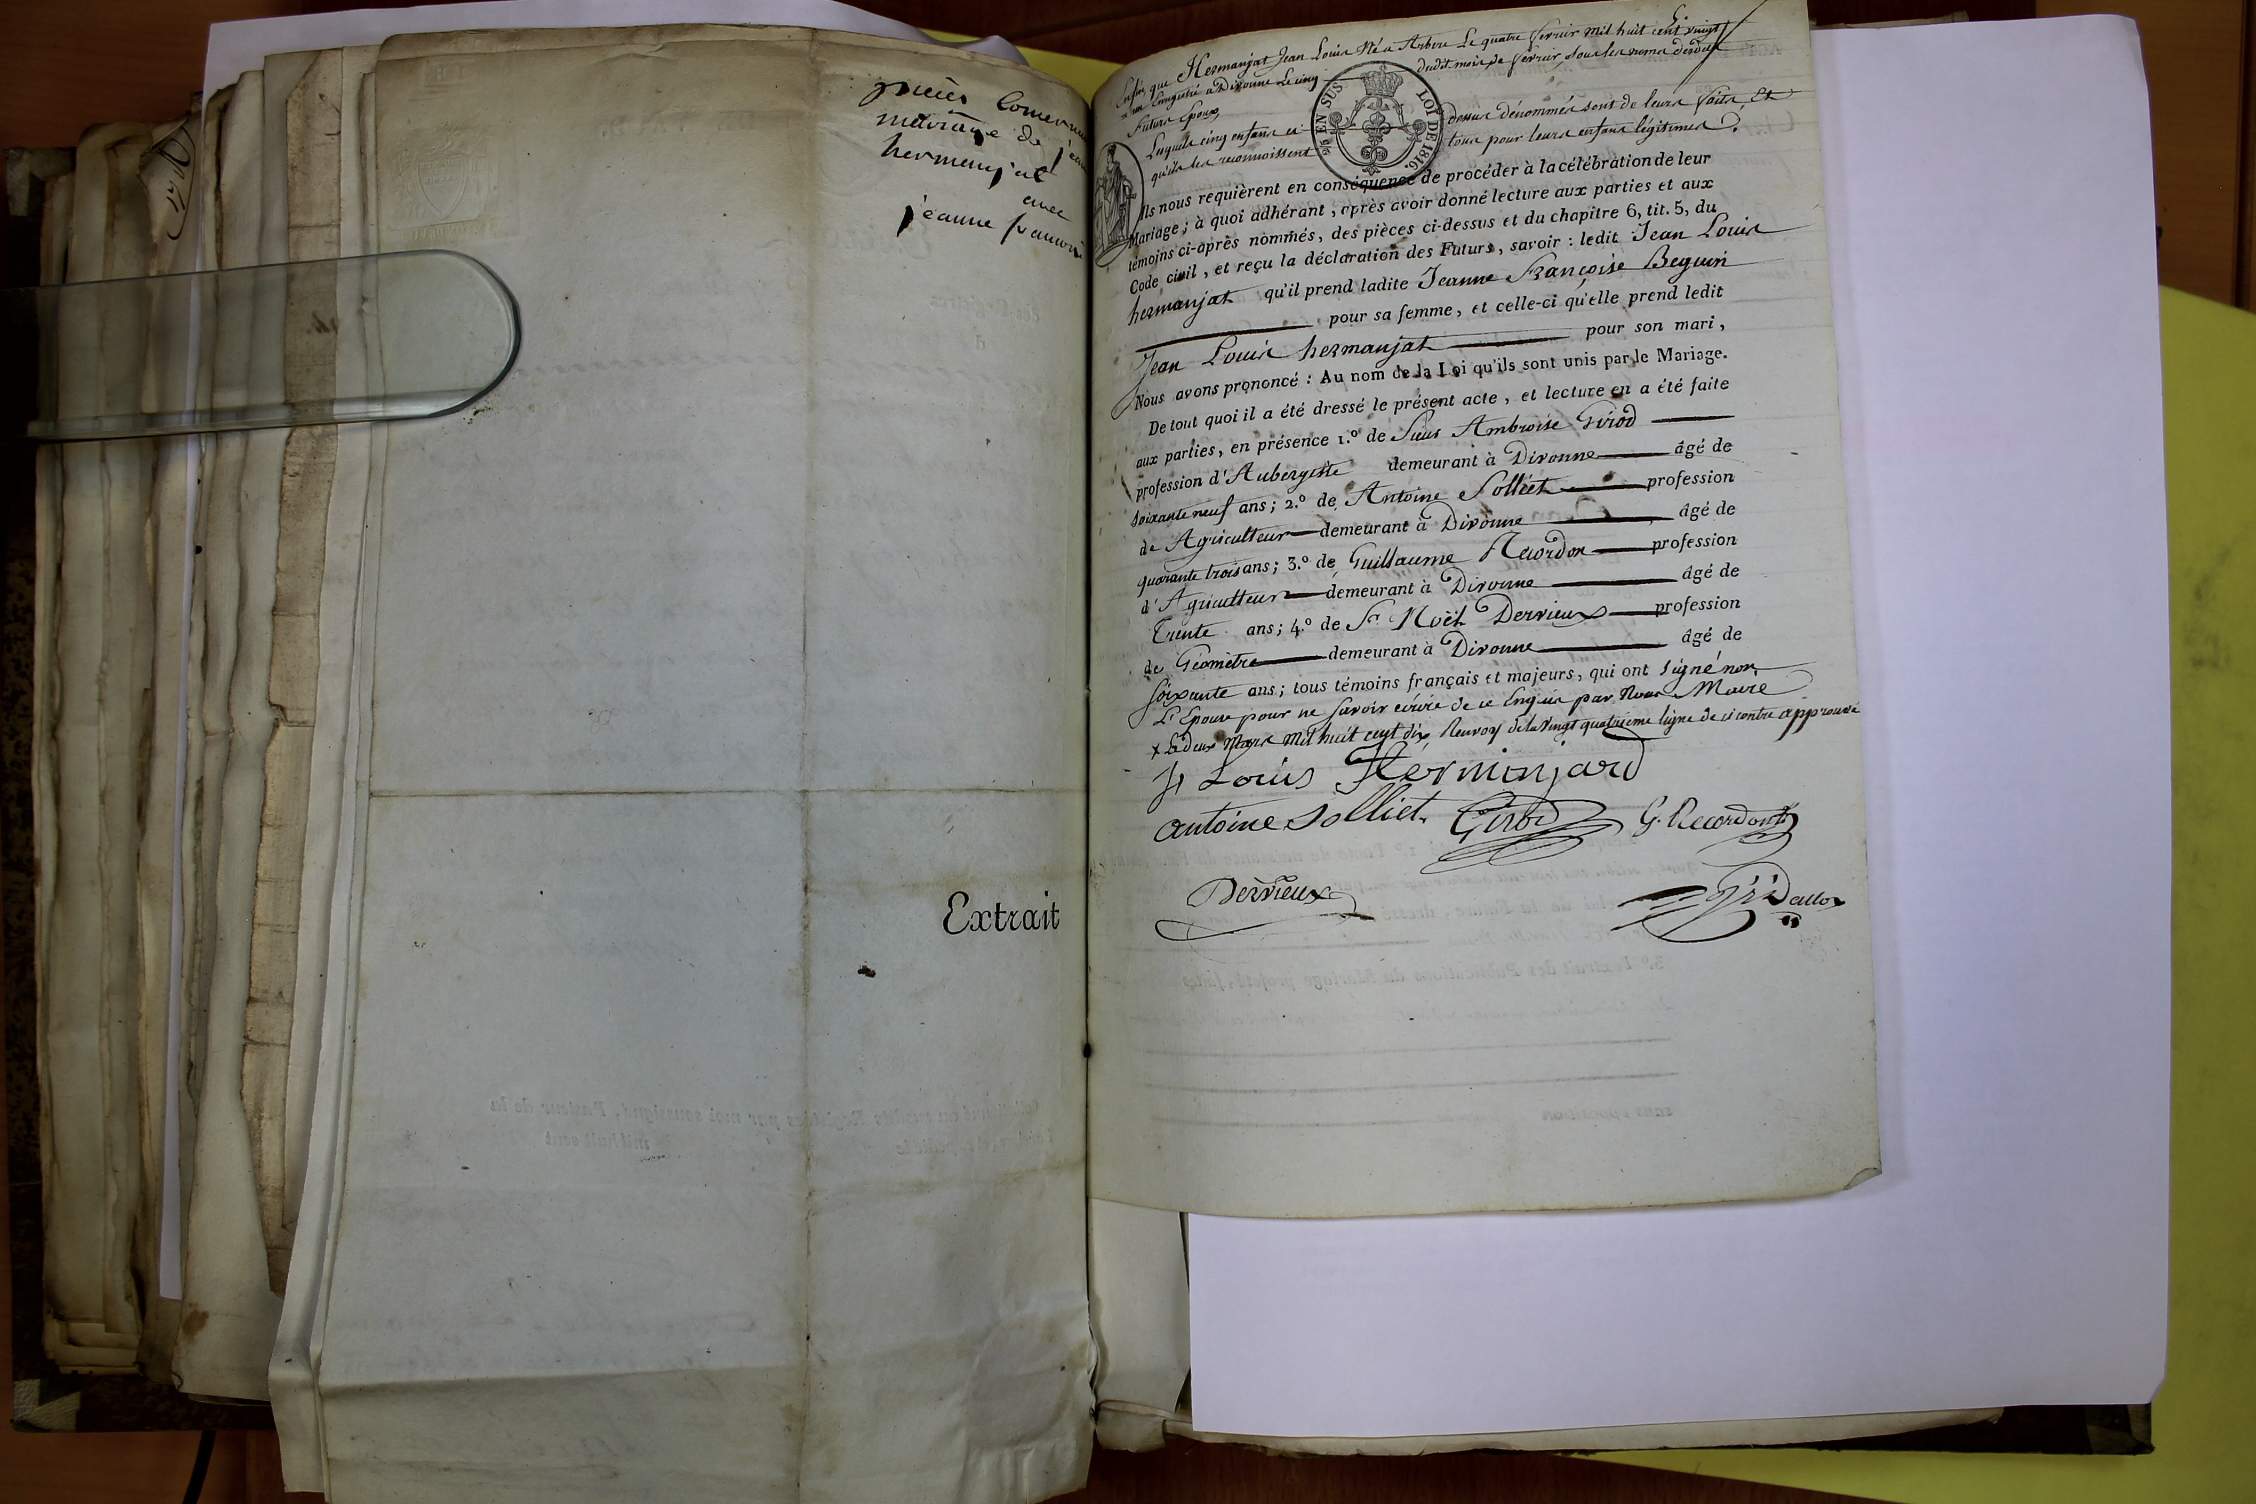 pièces
mariage de
hermenjat
avec
jeanne
Extrait
Enfin, que Hermanjat Jean Louis Né a Arbere Le quatre fevrier mil huit cent vingt
a Divonne Le cinq dudit mois de fevrier, sous les noms desdits
Futurs Epoux,
Lesquels cinq enfans ci dessus dénommés sont de leurs faits, et
qu'ils les reconnoissent tous pour leurs enfans légitimes.
96 EN SUS
LOI DE 1816.
Ils nous requièrent en conséquence de procéder à la célébration de leur
Mariage ; à quoi adhérant , après avoir donné lecture aux parties et aux
témoins ci-après nommés, des pièces ci-dessus et du chapitre 6, tit. 5, du
Code civil , et reçu la déclaration des Futurs , savoir : ledit Jean Louis
hermanjat qu'il prend ladite Jeanne Françoise Beguin
pour sa femme, et celle-ci qu'elle prend ledit
Jean Louis hermanjat pour son mari ,
Nous avons prononcé : Au nom de la Loi qu'ils sont unis par le Mariage.
De tout quoi il a été dressé le présent acte , et lecture en a été faite
aux parties, en présence 1.º de Sieur Ambroise Girod
profession d'Aubergiste demeurant à Divonne âgé de
soixante neuf ans ; 2.º de Antoine Solliet profession
de Agriculteur demeurant à Divonne âgé de
quarante trois ans ; 3.º de Guillaume Recordon profession
d'Agriculteur demeurant à Divonne âgé de
Trente ans ; 4.º de Sr Noël Dervieux profession
de Géomètre demeurant à Divonne âgé de
soixante ans ; tous témoins français et majeurs, qui ont signé non
L'Epouse pour ne savoir écrire de ce Enquis par Nous Maire
x Le deux Mars mil huit cent dix, Renvoy de la vingt quatrieme ligne de ci contre approuvé
J Louis Herminjard
antoine Solliet. Girod G. Recordont
Dervieux